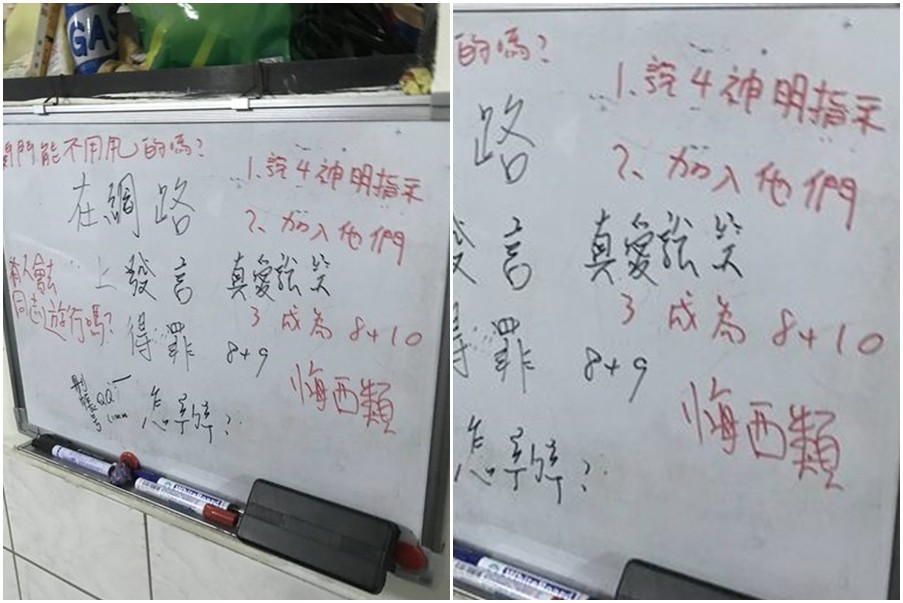 門能不用甩的嗎?
在網路
上發言 真愛說笑
得罪 8+9
怎辦?
1.說4神明指示
2、加入他們
3 成為 8+10
悔西類
有人會去
同志遊行嗎?
QQ
GAS
的嗎?
路
發言 真愛說笑
得罪 8+9
怎辦?
1.說4神明指示
2、加入他們
3 成為 8+10
悔西類